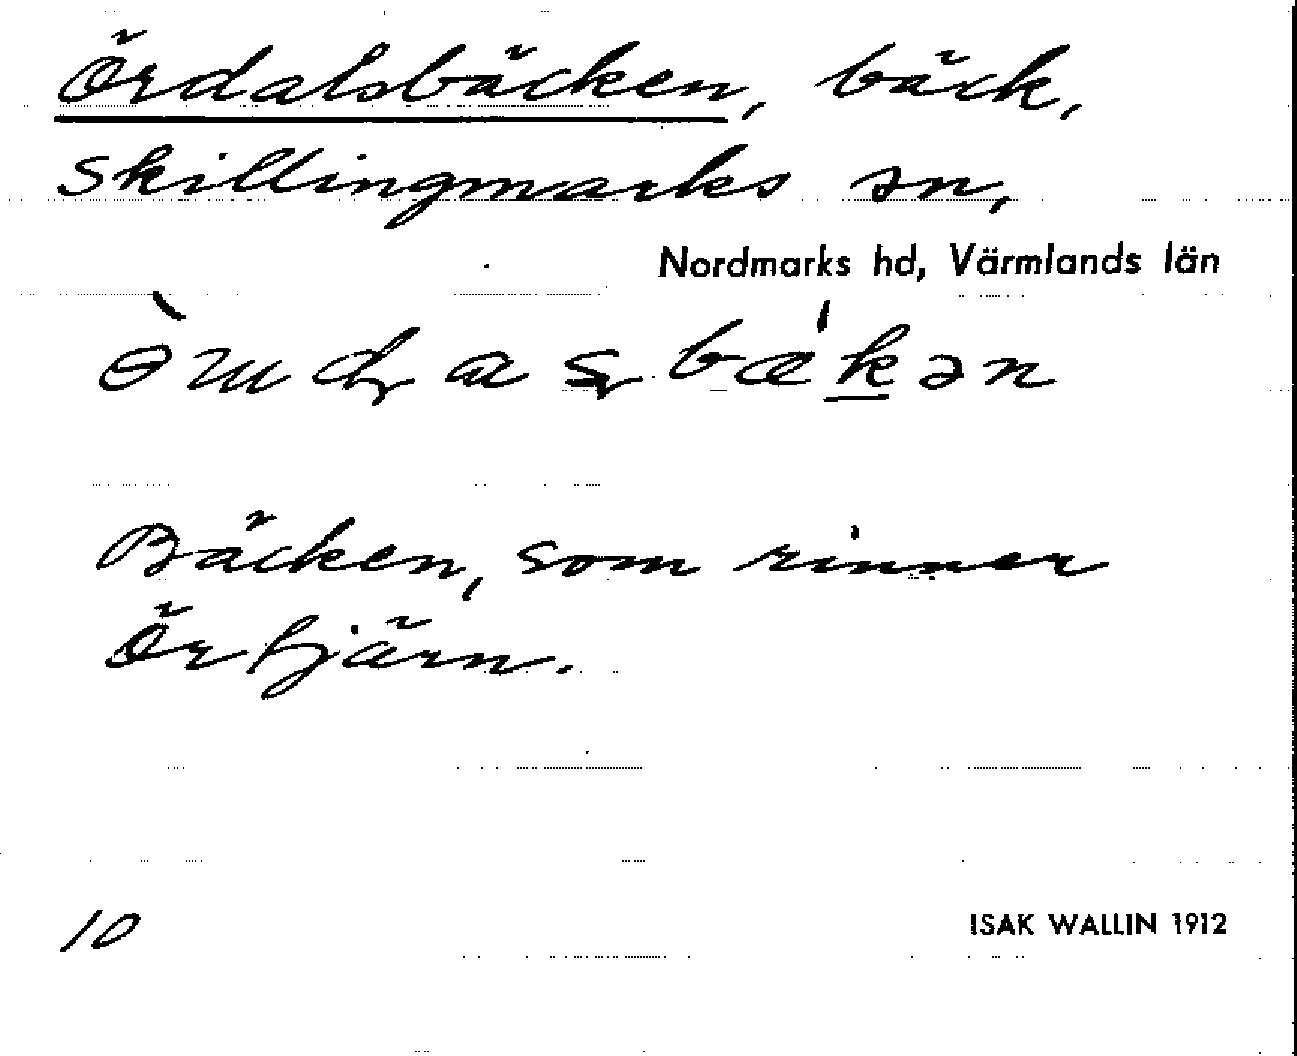 Ördalsbäcken, bäck,
Skillingmarks sn,
Nordmarks hd, Värmlands län
Bäcken, som rinner
Örtjärn.
10
ISAK WALLIN 1912